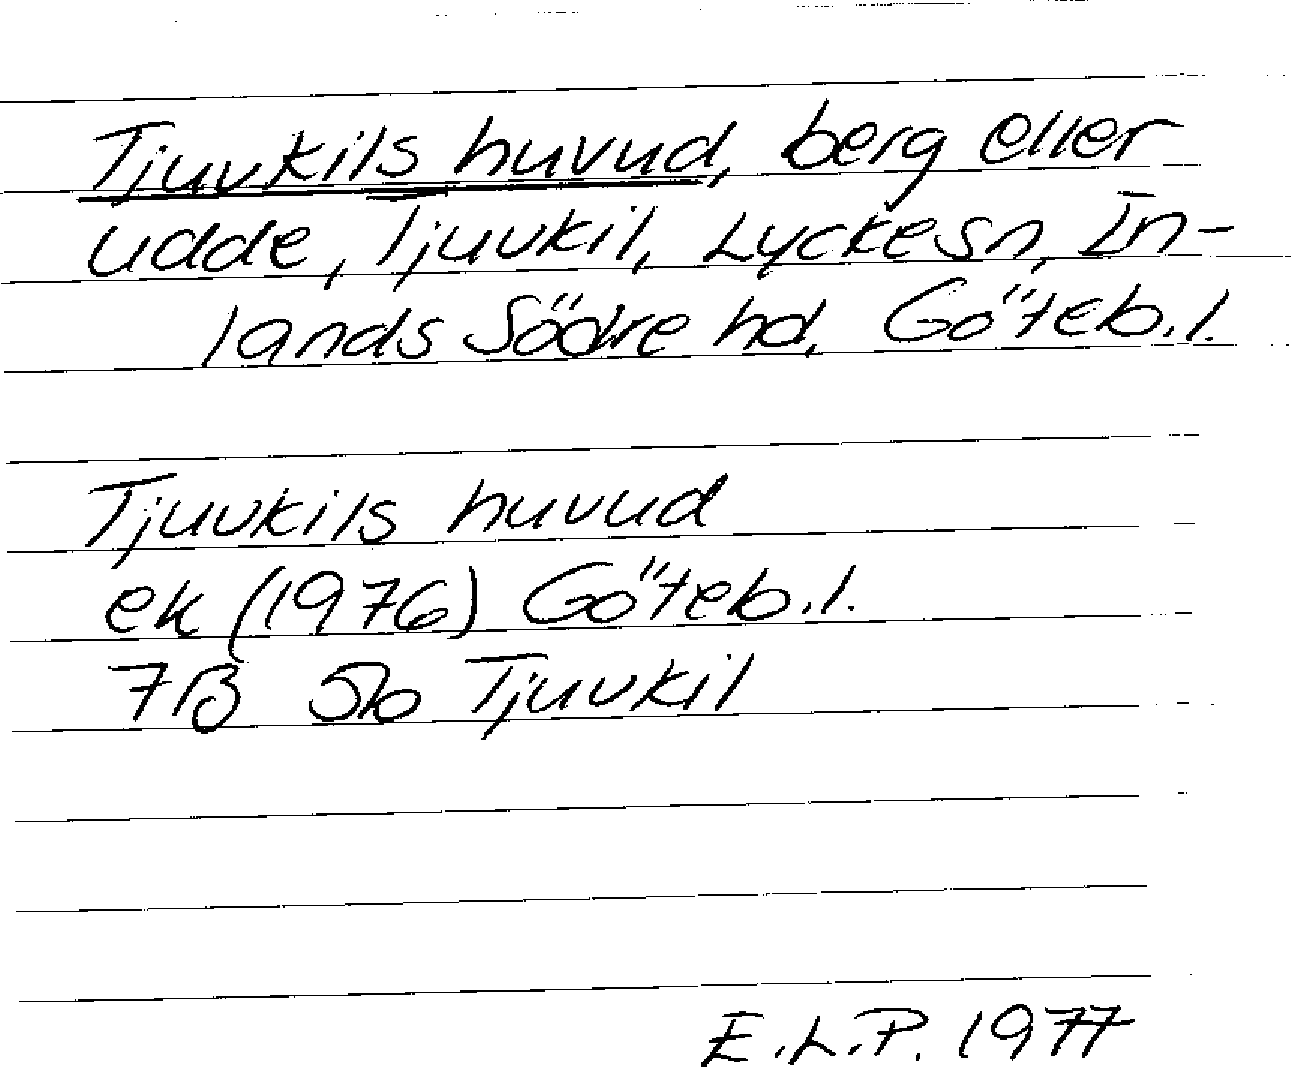 Tjuvkils huvud, berg eller
udde, Tjuvkil, Lyckesn, In-
lands Södre hd, Göteb.l.
Tjuvkils huvud
ek (1976) Göteb.l.
7B 5b Tjuvkil
E.L.P. 1977